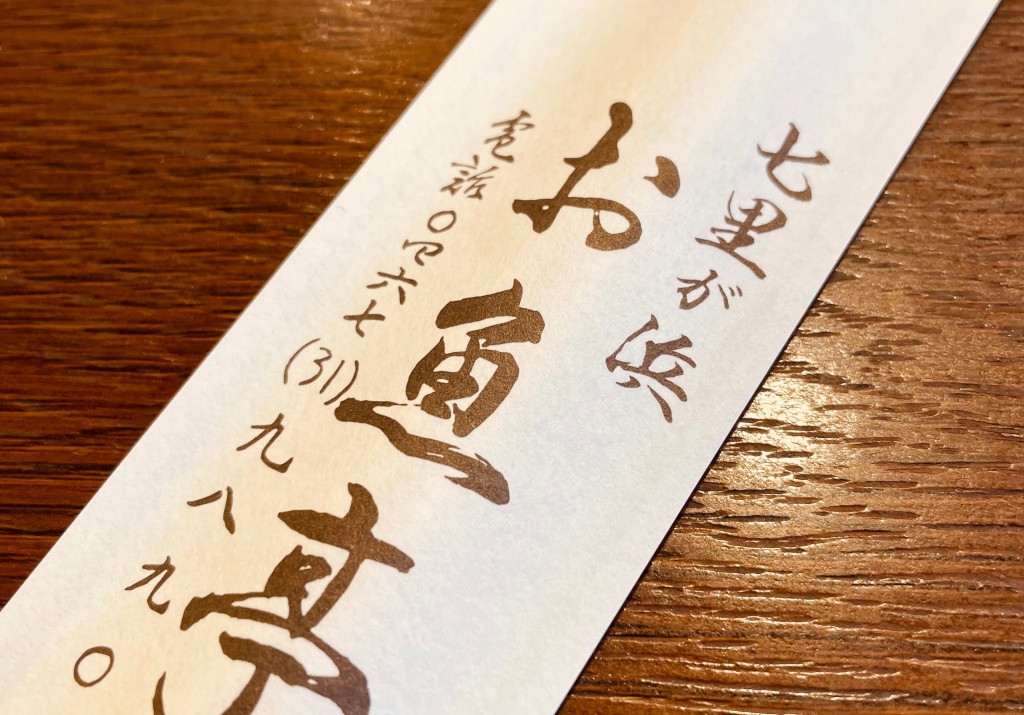 七里が浜
お魚亭
電話〇四六七(31)九八九〇